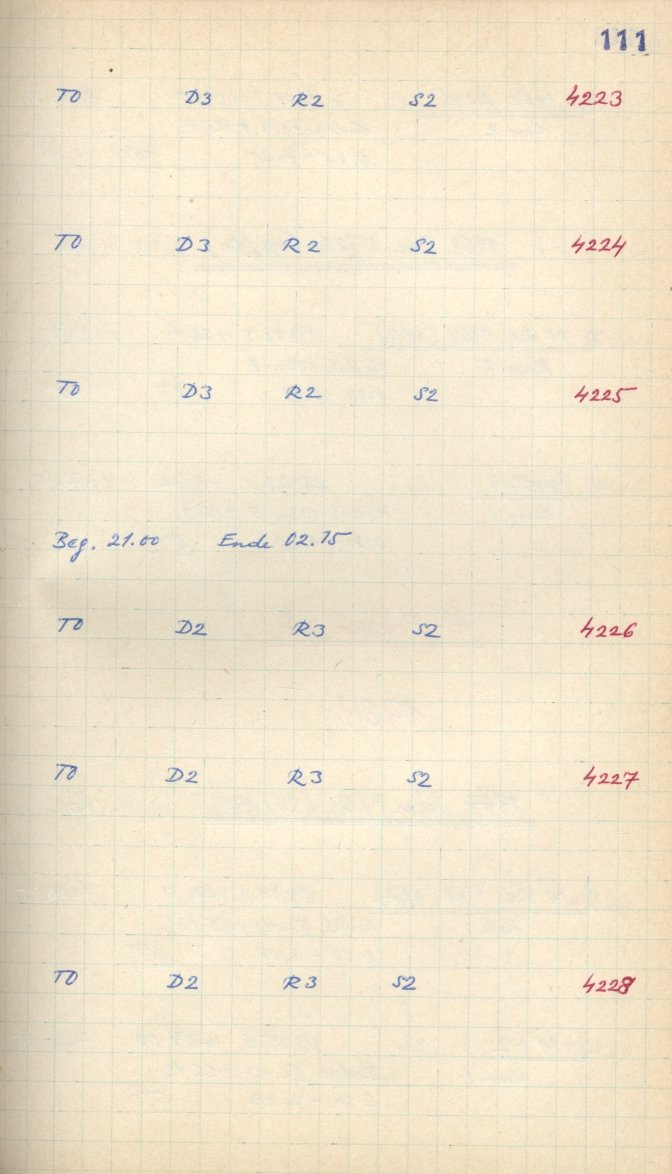 111
TO D3 R2 S2 4223
TO D3 R2 S2 4224
TO D3 R2 S2 4225
Beg. 21.00 Ende 02.15
TO D2 R3 S2 4226
TO D2 R3 S2 4227
TO D2 R3 S2 4228